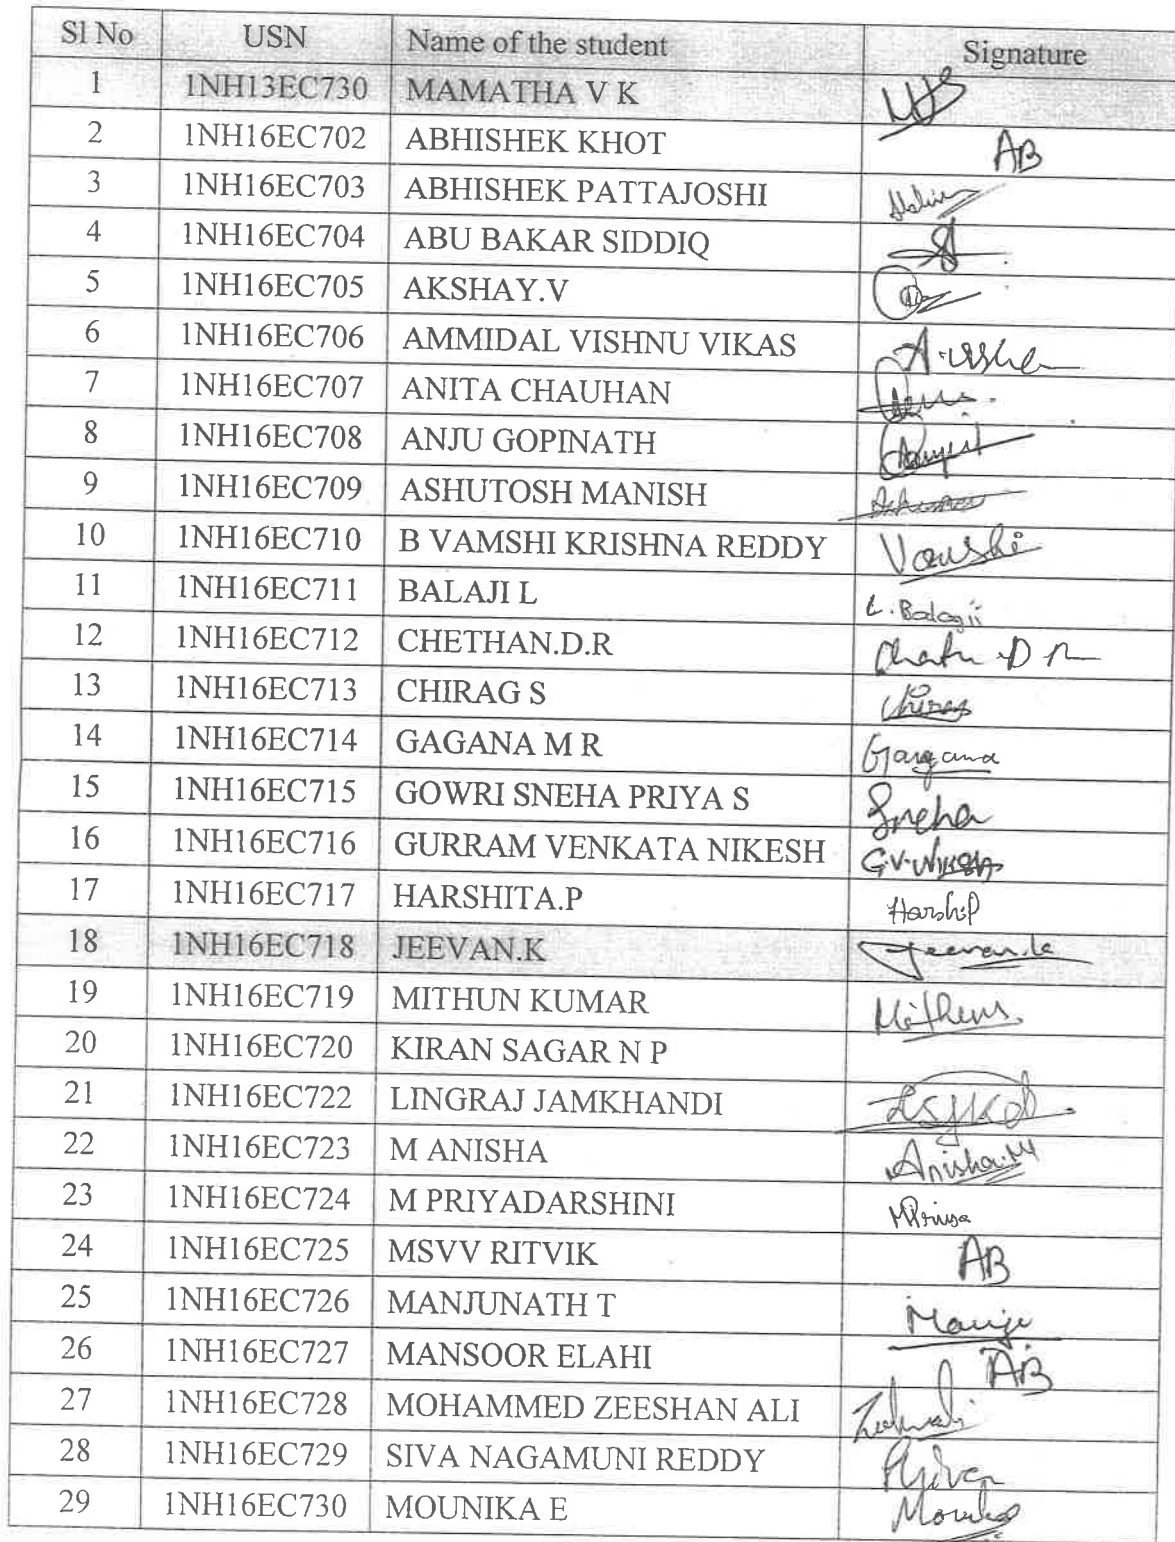 Sl No USN Name of the student Signature
1 1NH13EC730 MAMATHA V K
2 1NH16EC702 ABHISHEK KHOT AB
3 1NH16EC703 ABHISHEK PATTAJOSHI
4 1NH16EC704 ABU BAKAR SIDDIQ
5 1NH16EC705 AKSHAY.V
6 1NH16EC706 AMMIDAL VISHNU VIKAS
7 1NH16EC707 ANITA CHAUHAN
8 1NH16EC708 ANJU GOPINATH
9 1NH16EC709 ASHUTOSH MANISH
10 1NH16EC710 B VAMSHI KRISHNA REDDY Vamshi
11 1NH16EC711 BALAJI L L. Balagii
12 1NH16EC712 CHETHAN.D.R
13 1NH16EC713 CHIRAG S Chirag
14 1NH16EC714 GAGANA M R
15 1NH16EC715 GOWRI SNEHA PRIYA S Sneha
16 1NH16EC716 GURRAM VENKATA NIKESH G.V.Nikesh
17 1NH16EC717 HARSHITA.P HarshiP
18 1NH16EC718 JEEVAN.K Jeevan.k
19 1NH16EC719 MITHUN KUMAR
20 1NH16EC720 KIRAN SAGAR N P
21 1NH16EC722 LINGRAJ JAMKHANDI
22 1NH16EC723 M ANISHA Anisha.M
23 1NH16EC724 M PRIYADARSHINI
24 1NH16EC725 MSVV RITVIK AB
25 1NH16EC726 MANJUNATH T
26 1NH16EC727 MANSOOR ELAHI AB
27 1NH16EC728 MOHAMMED ZEESHAN ALI
28 1NH16EC729 SIVA NAGAMUNI REDDY
29 1NH16EC730 MOUNIKA E